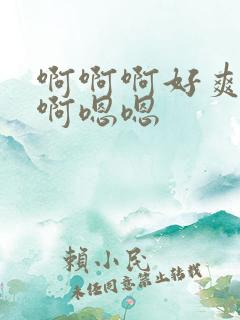 啊啊啊好爽
啊嗯嗯
賴小民
未經同意禁止转载